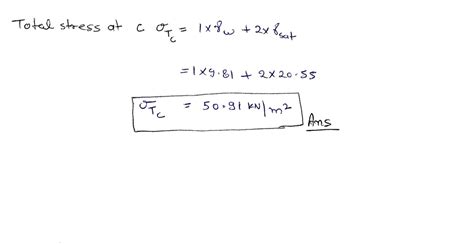 Total stress at C σ_Tc = 1×γ_w + 2×γ_sat
= 1×9.81 + 2×20.55
σ_Tc = 50.91 kN/m² Ans